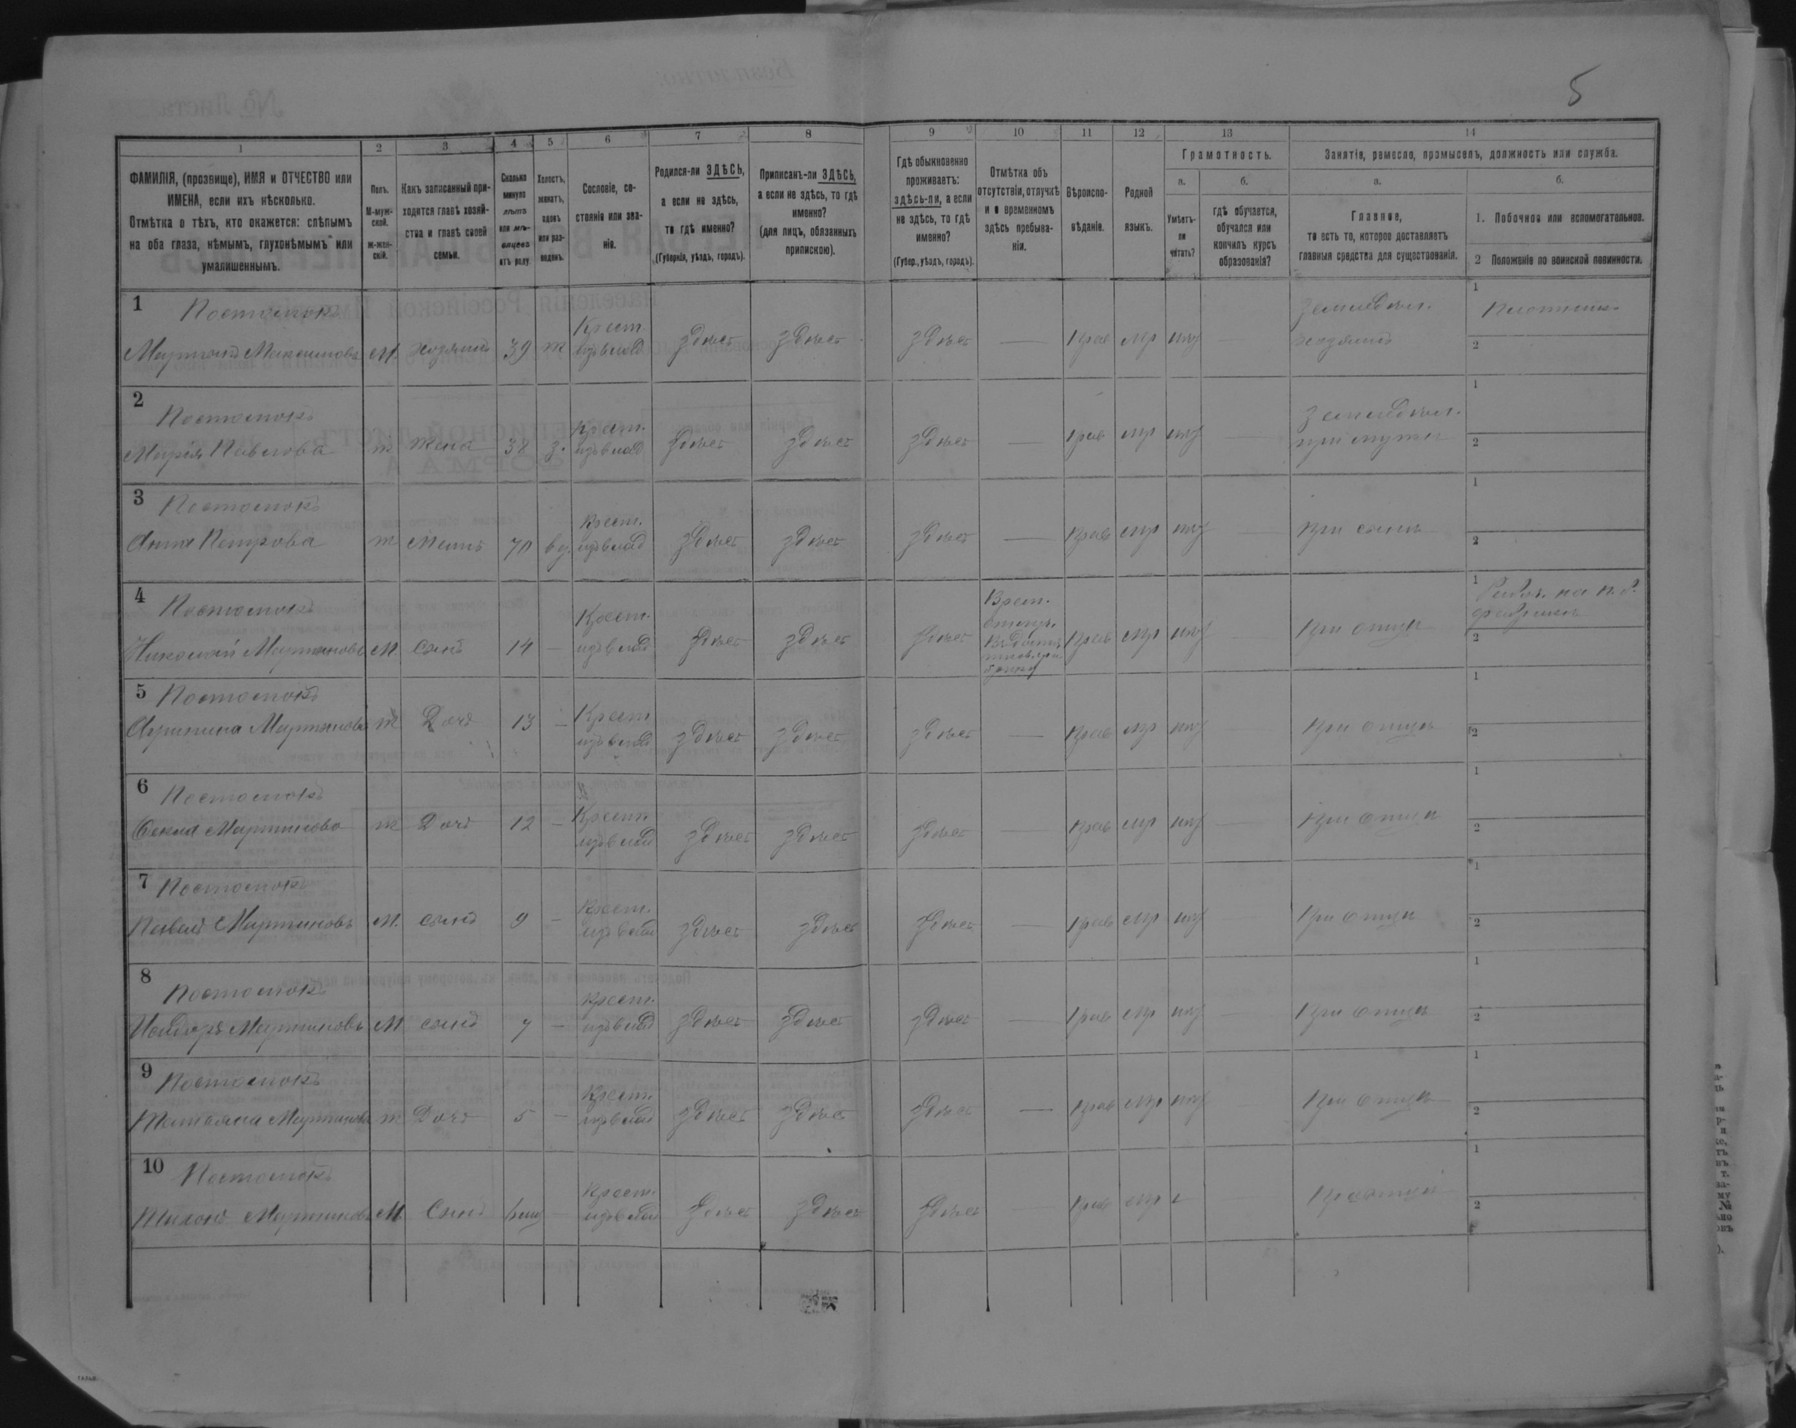 5
1 2 3 4 5 6 7 8 9 10 11 12 13 14
ФАМИЛІЯ, (прозвище), ИМЯ и ОТЧЕСТВО или
ИМЕНА, если ихъ нѣсколько.
Отмѣтка о тѣхъ, кто окажется: слѣпымъ
на оба глаза, нѣмымъ, глухонѣмымъ или
умалишеннымъ.
Полъ.
М-муж-
ской.
ж-жен-
скій.
Какъ записанный при-
ходится главѣ хозяй-
ства и главѣ своей
семьи.
Сколько
минуло
лѣтъ
или мѣ-
сяцевъ
отъ роду.
Холостъ,
женатъ,
вдовъ
или раз-
веденъ.
Сословіе, со-
стояніе или зва-
ніе.
Родился-ли ЗДѢСЬ,
а если не здѣсь,
то гдѣ именно?
(Губернія, уѣздъ, городъ).
Приписанъ-ли ЗДѢСЬ,
а если не здѣсь, то гдѣ
именно?
(для лицъ, обязанныхъ
припискою).
Гдѣ обыкновенно
проживаетъ:
здѣсь-ли, а если
не здѣсь, то гдѣ
именно?
(Губер., уѣздъ, городъ).
Отмѣтка объ
отсутствіи, отлучкѣ
и о временномъ
здѣсь пребыва-
ніи.
Вѣроиспо-
вѣданіе.
Родной
языкъ.
Грамотность.
а.
Умѣетъ-
ли
читать?
б.
гдѣ обучается,
обучался или
кончилъ курсъ
образованія?
Занятіе, ремесло, промыселъ, должность или служба.
а.
Главное,
то есть то, которое доставляетъ
главныя средства для существованія.
б.
1. Побочное или вспомогательное.
2 Положеніе по воинской повинности.
1 Постолюкъ Крест. Земледѣл. 1 Плотникъ
Мартинъ Максимовъ М. хозяинъ 39 ж изъ влад здѣсь здѣсь здѣсь — Прав мр нѣт — хозяинъ 2
2 Постолюкъ Крест. Земледѣл. 1
Марія Павлова ж жена 38 з. изъ влад здѣсь здѣсь здѣсь — Прав мр нѣт — при мужѣ 2
3 Постолюкъ Крест. 1
Анна Петрова ж мать 70 вд. изъ влад здѣсь здѣсь здѣсь — Прав мр нѣт — При сынѣ 2
4 Постолюкъ Крест. Врем. 1
Николай Мартиновъ М. сынъ 14 — изъ влад здѣсь здѣсь здѣсь Прав мр нѣт При отцѣ 2
5 Постолюкъ Крест. 1
Мартинова ж Дочь 13 — изъ влад здѣсь здѣсь здѣсь — Прав мр нѣт — При отцѣ 2
6 Постолюкъ Крест. 1
Мартинова ж Дочь 12 — изъ влад здѣсь здѣсь здѣсь — Прав мр нѣт — При отцѣ 2
7 Постолюкъ Крест. 1
Павелъ Мартиновъ М. сынъ 9 — изъ влад здѣсь здѣсь здѣсь — Прав мр нѣт — При отцѣ 2
8 Постолюкъ Крест. 1
Мартиновъ М сынъ 7 — изъ влад здѣсь здѣсь здѣсь — Прав мр нѣт — При отцѣ 2
9 Постолюкъ Крест. 1
Татьяна Мартинова ж Дочь 5 — изъ влад здѣсь здѣсь здѣсь — Прав мр нѣт — При отцѣ 2
10 Постолюкъ Крест. 1
Тихонъ Мартиновъ М Сынъ изъ влад здѣсь здѣсь здѣсь Прав мр — При отцѣ 2